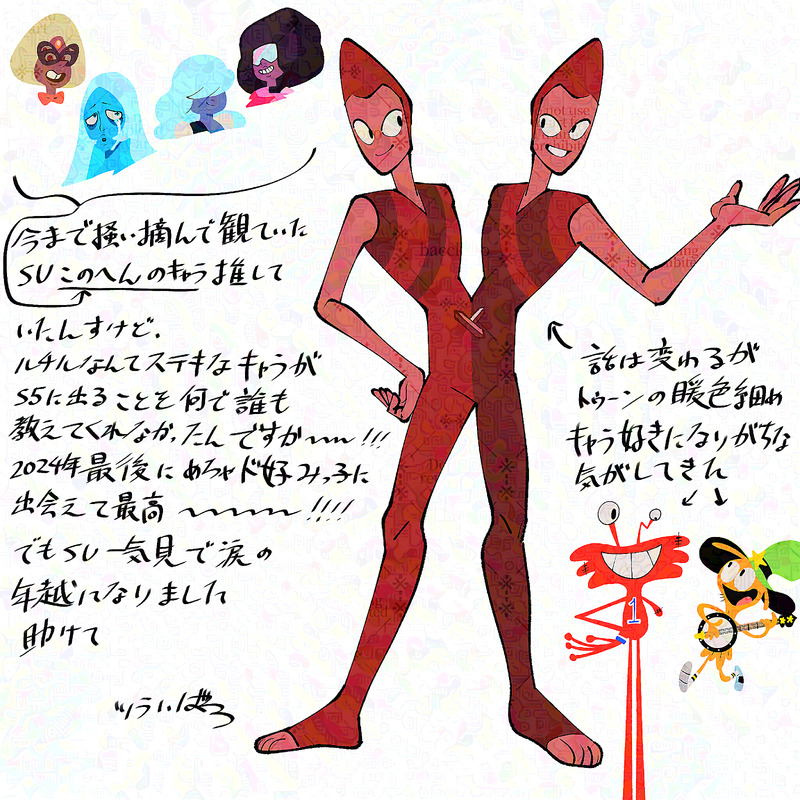 今まで掻い摘んで観ていた
SUこのへんのキャラ推して
いたんすけど、
ルチルなんてステキなキャラが
S5に出ることを何で誰も
教えてくれなかったんですか〜〜!!!
2024年最後にめちゃド好みっ子に
出会えて最高〜〜〜〜!!!!
でもSU一気見で涙の
年越になりました
助けて
話は変わるが
トゥーンの暖色細め
キャラ好きになりがちな
気がしてきた
1